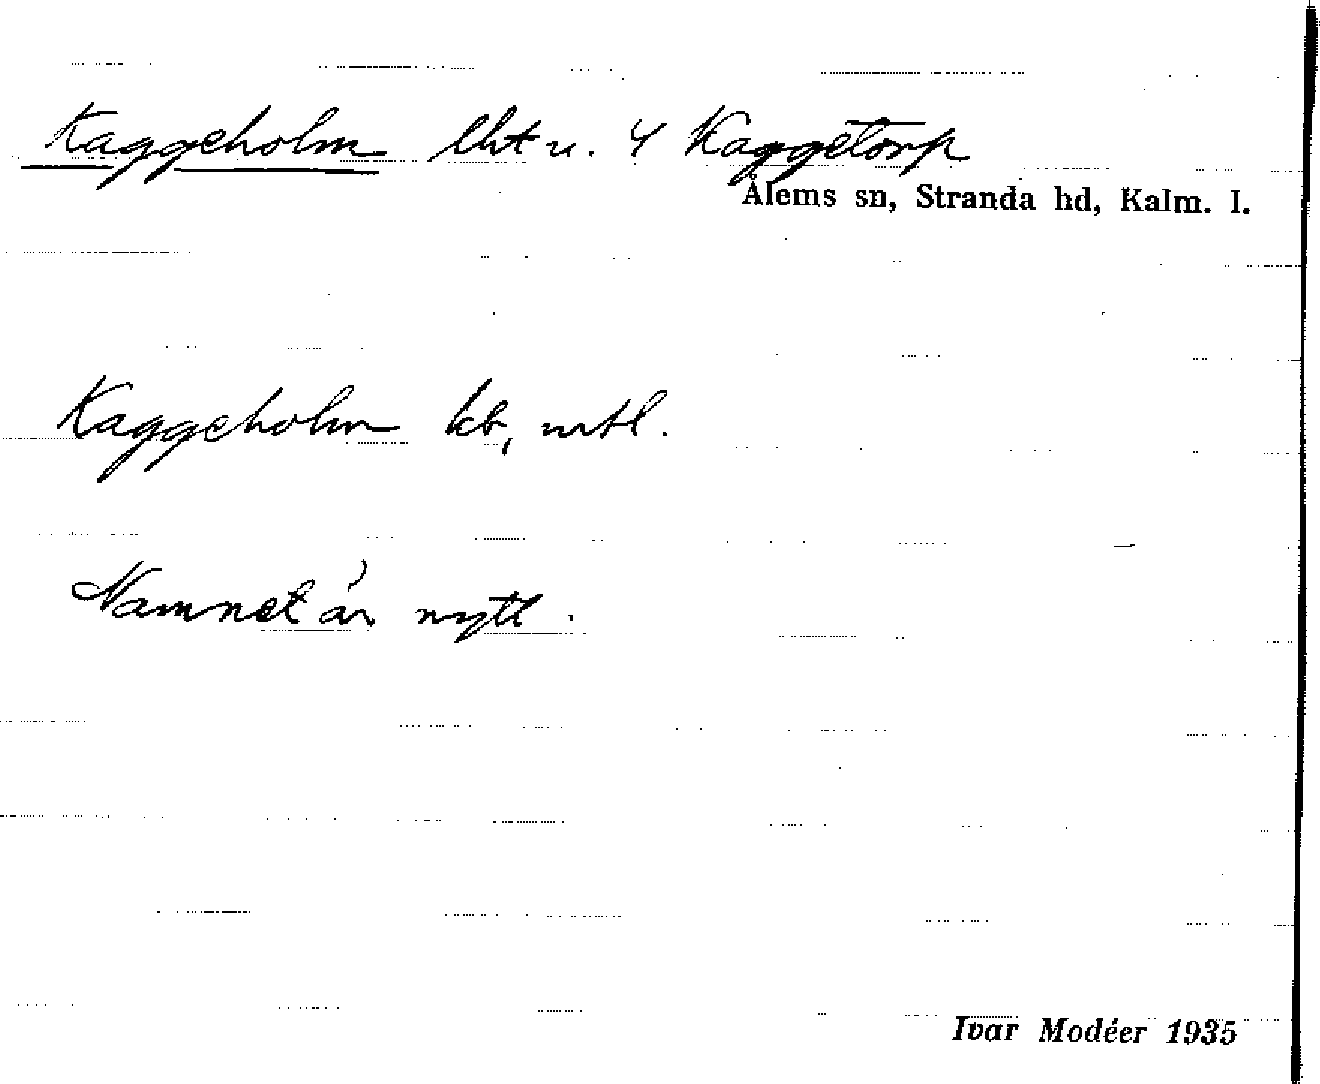 Kaggeholm lht u. 4 Kaggetorp
Ålems sn, Stranda hd, Kalm. l.
Kaggeholm kb, mtl.
Namnet är nytt.
Ivar Modéer 1935